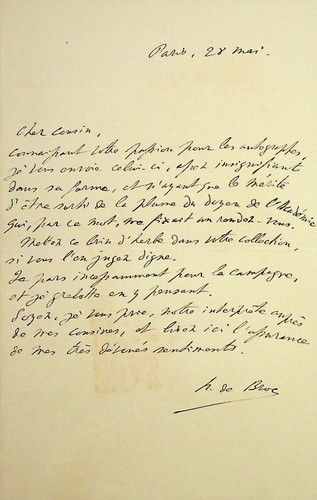 Paris, 28 mai.
Cher Cousin,
Connaissant votre passion pour les autographes,
je vous envoie celui-ci, assez insignifiant
dans sa forme, et n'ayant que le mérite
d'être sorti de la plume du doyen de l'Académie
qui, par ce mot, me fixait un rendez-vous.
Mettez ce brin d'herbe dans votre collection,
si vous l'en jugez digne.
Je pars incessamment pour la campagne,
et je grelotte en y pensant.
Soyez, je vous prie, notre interprète auprès
de mes cousines, et lisez ici l'assurance
de mes très dévoués sentiments.
h. de Broc